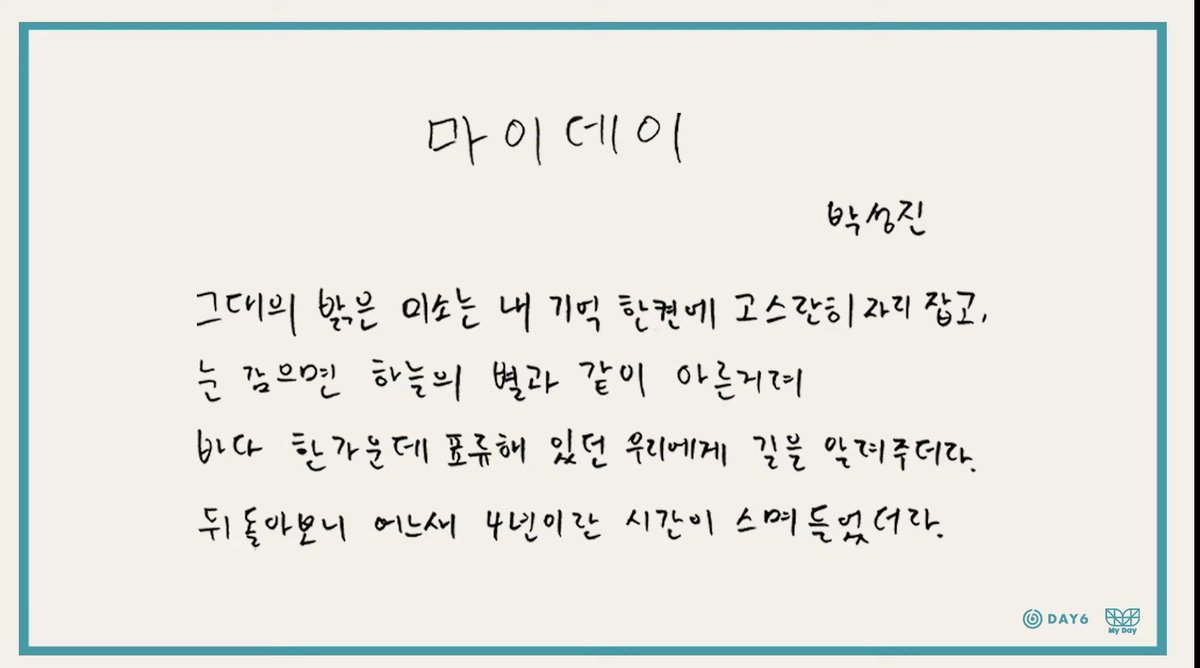 마이데이
박성진
그대의 밝은 미소는 내 기억 한켠에 고스란히 자리 잡고,
눈 감으면 하늘의 별과 같이 아른거려
바다 한가운데 표류해 있던 우리에게 길을 알려주더라.
뒤돌아보니 어느새 4년이란 시간이 스며들었더라.
DAY6 My Day